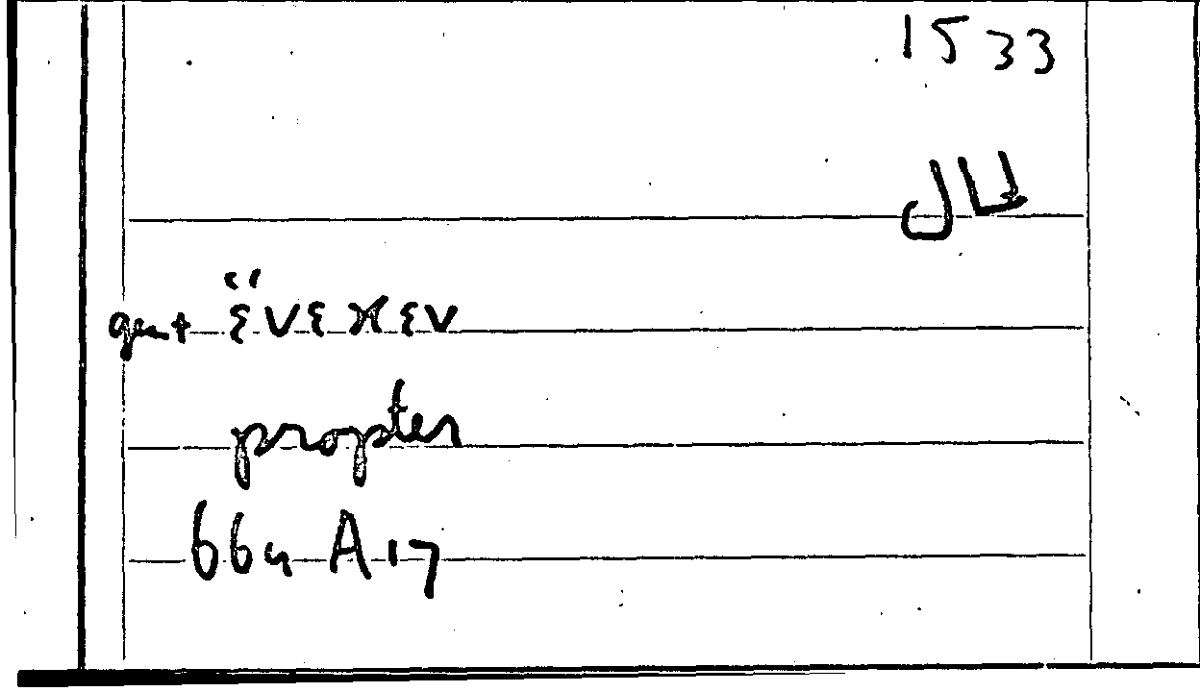 1533
لحال
gen + ἕνεκεν
propter
664 A 17